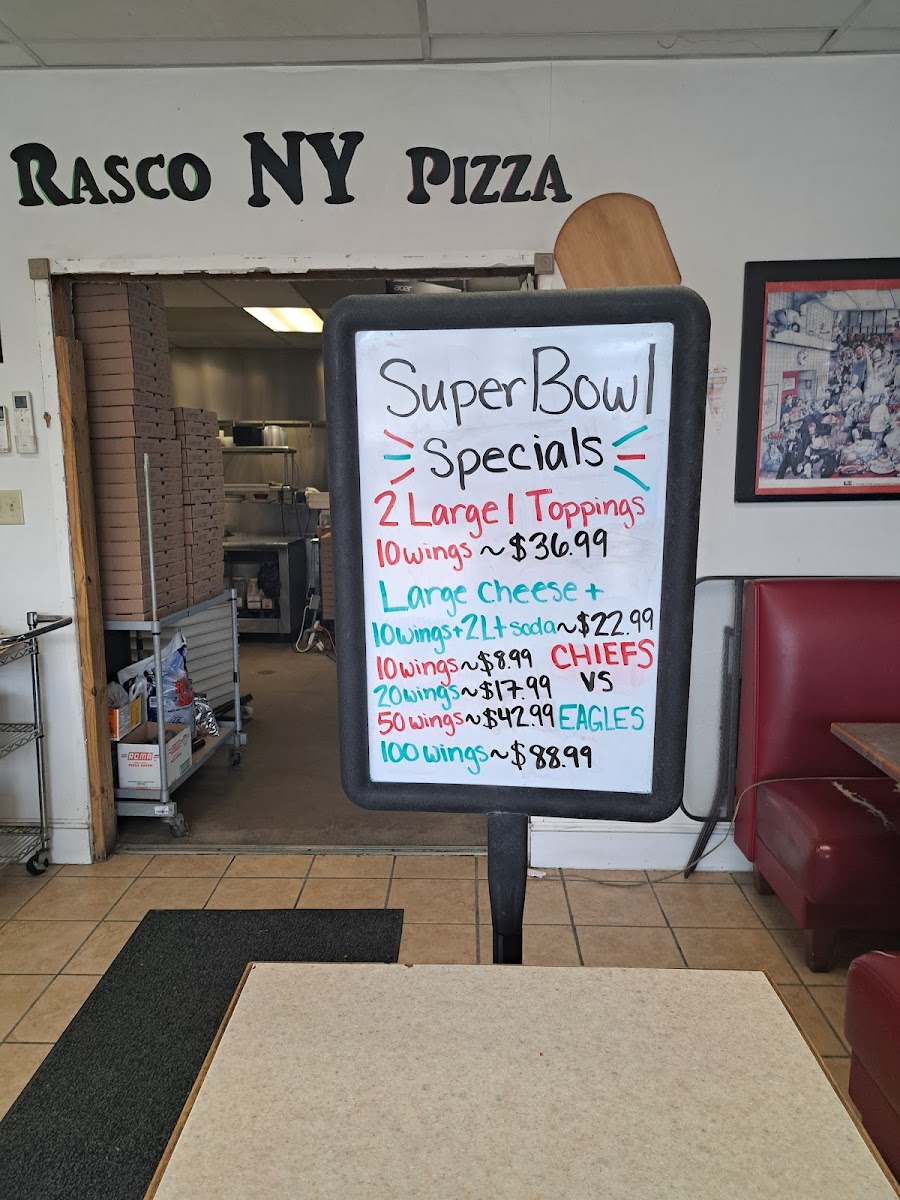 RASCO NY PIZZA
acer
Super Bowl
Specials
2 Large 1 Toppings
10 wings ~ $36.99
Large Cheese +
10wings + 2 Lt soda ~ $22.99
10 wings ~ $8.99
20 wings ~ $17.99
50 wings ~ $42.99
100 wings ~ $88.99
CHIEFS
VS
EAGLES
ROMA